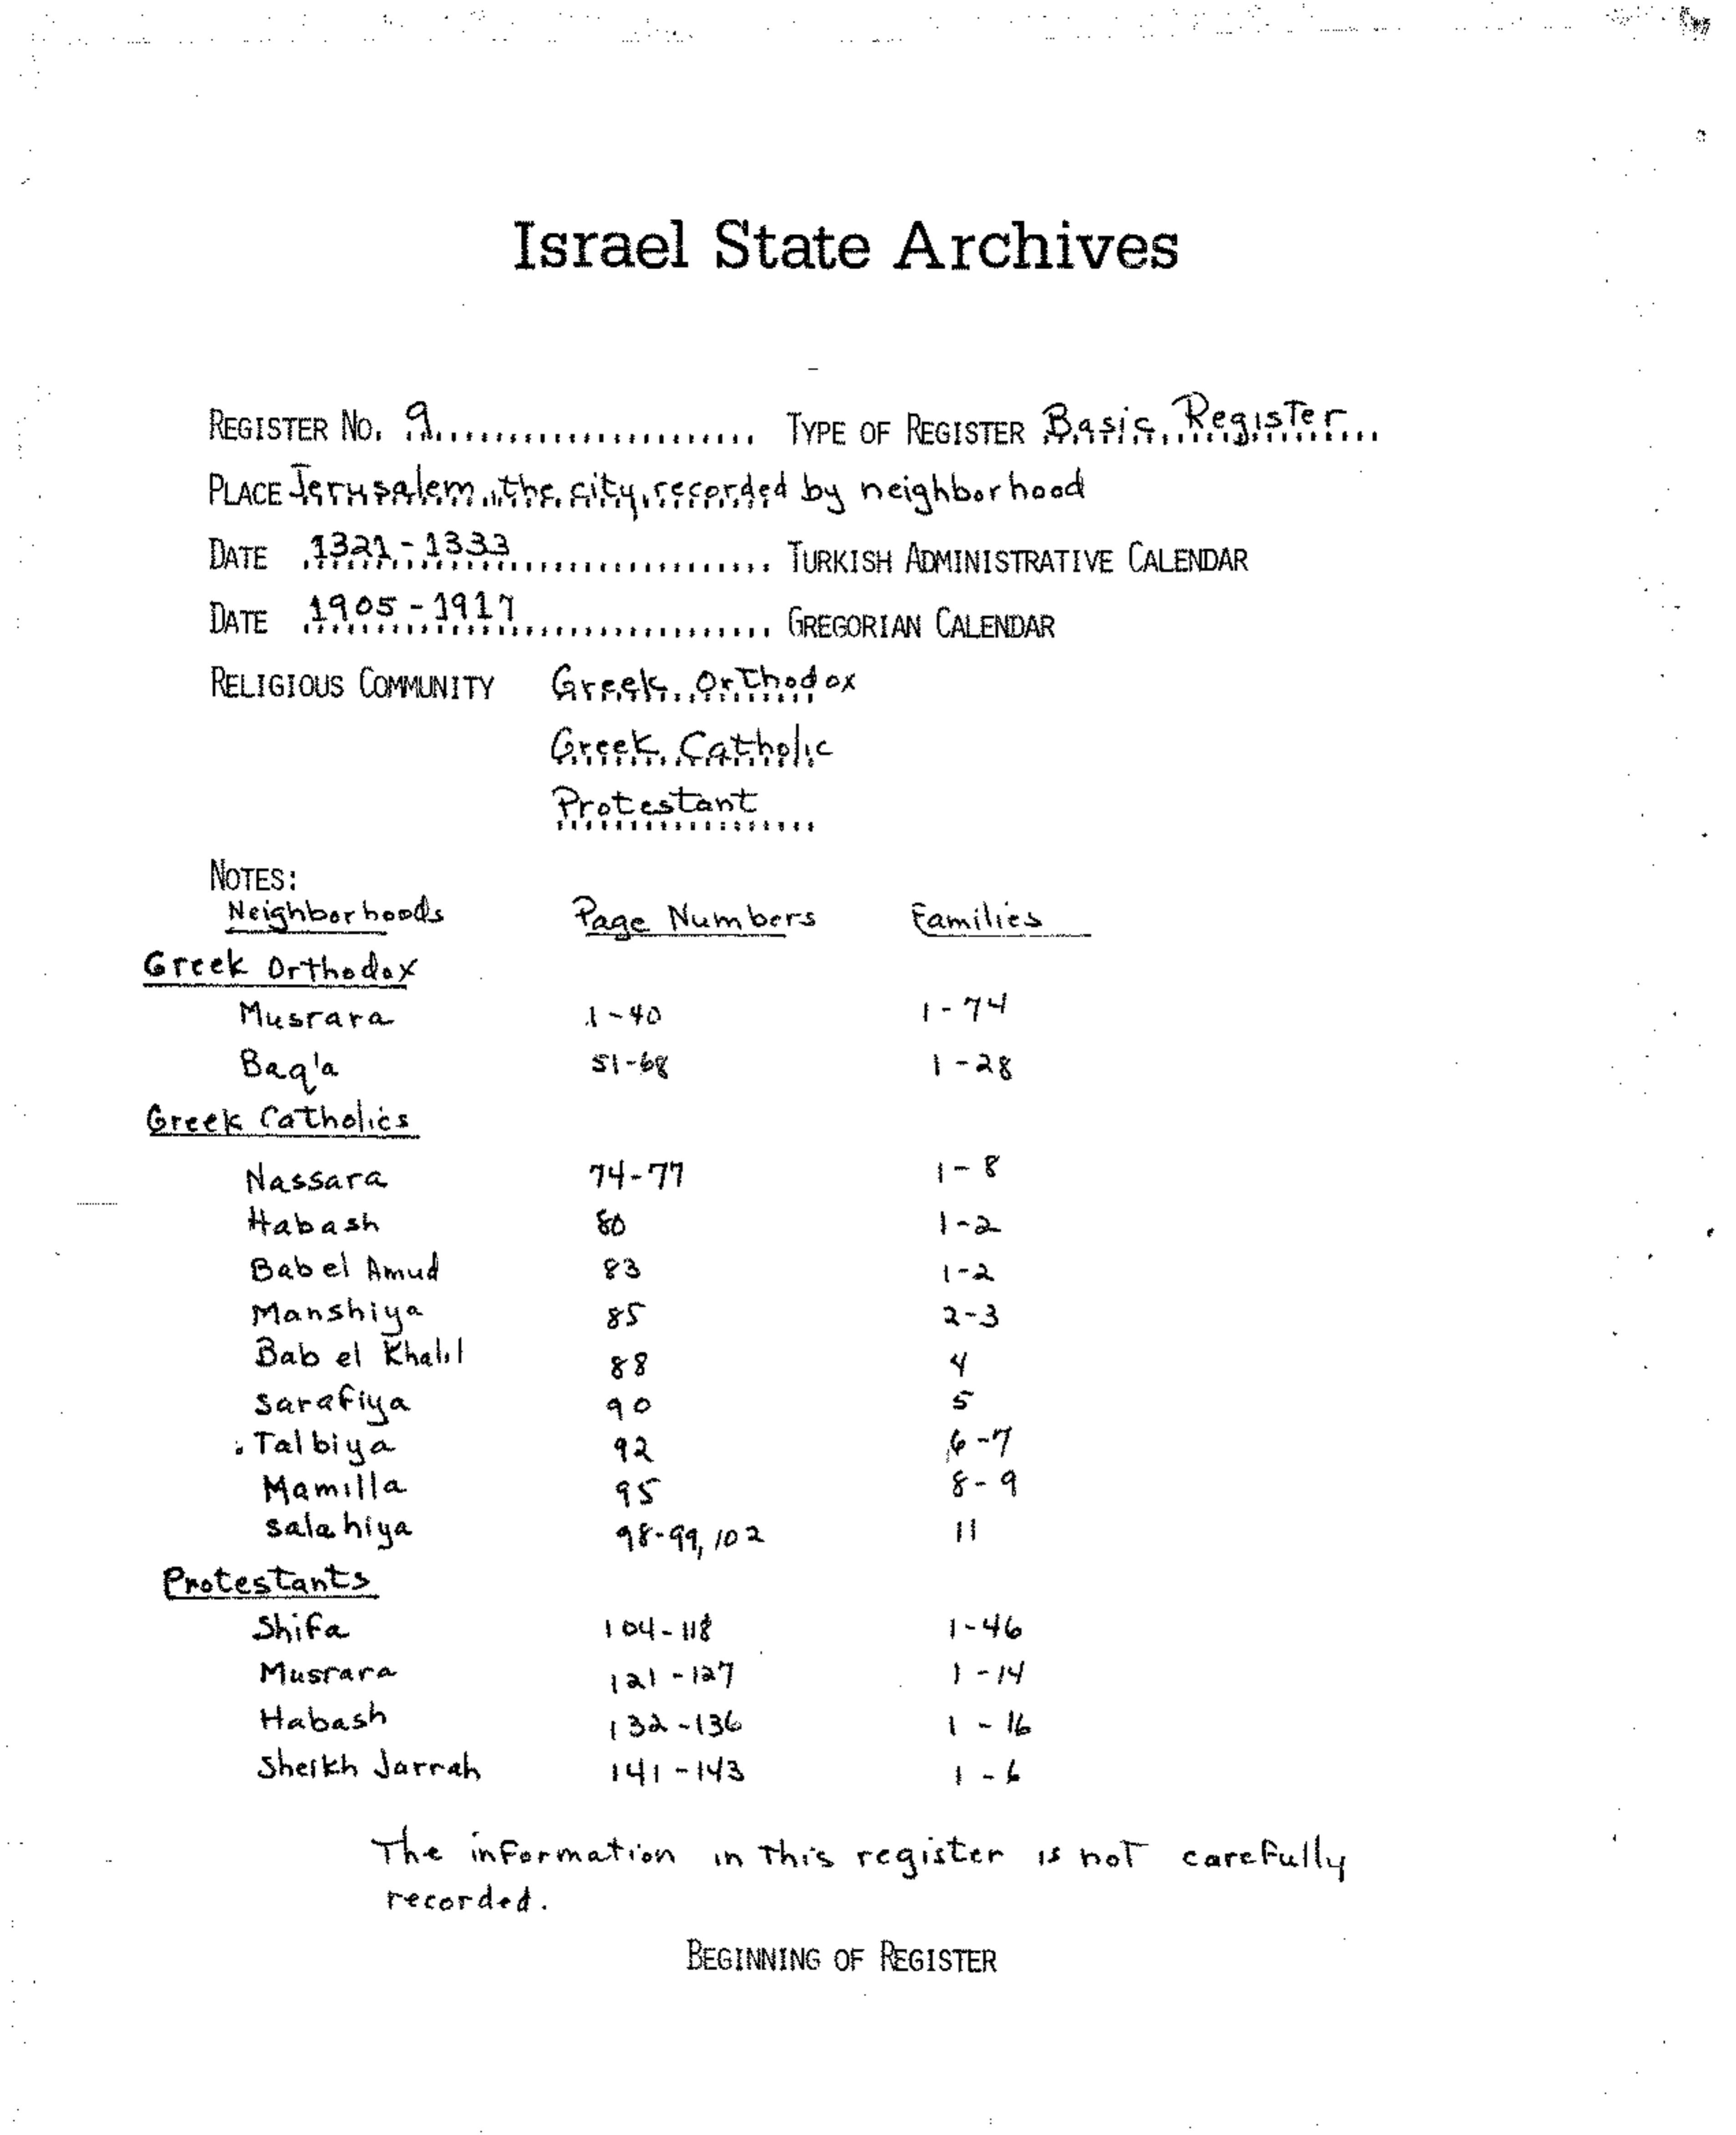 Israel State Archives
REGISTER NO. 9 TYPE OF REGISTER Basic Register
PLACE Jerusalem, the city, recorded by neighborhood
DATE 1321-1333 TURKISH ADMINISTRATIVE CALENDAR
DATE 1905-1917 GREGORIAN CALENDAR
RELIGIOUS COMMUNITY Greek Orthodox
Greek Catholic
Protestant
NOTES:
Neighborhoods Page Numbers Families
Greek Orthodox
Musrara 1-40 1-74
Baq'a 51-68 1-28
Greek Catholics
Nassara 74-77 1-8
Habash 80 1-2
Bab el Amud 83 1-2
Manshiya 85 2-3
Bab el Khalil 88 4
Sarafiya 90 5
Talbiya 92 6-7
Mamilla 95 8-9
Salahiya 98-99, 102 11
Protestants
Shifa 104-118 1-46
Musrara 121-127 1-14
Habash 132-136 1-16
Sheikh Jarrah 141-143 1-6
The information in this register is not carefully
recorded.
BEGINNING OF REGISTER